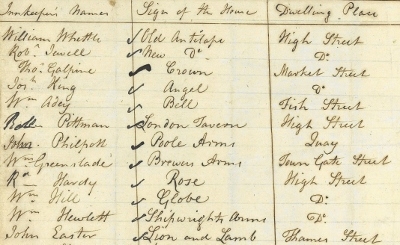 Innkeepers Names Sign of the House Dwelling Place
William Whittle Old Antelope High Street
Robt. Jewell New Do. Do.
Thos. Galpine Crown Market Street
Josh. King Angel Do.
Wm. Adey Bell Fish Street
Pittman London Tavern High Street
John Philpott Poole Arms Quay
Wm. Greenslade Brewers Arms Town Gate Street
Rd. Hardy Rose High Street
Wm. Hill Globe Do.
Wm. Hewlett Shipwrights Arms Do.
John Easter Lion and Lamb Thames Street